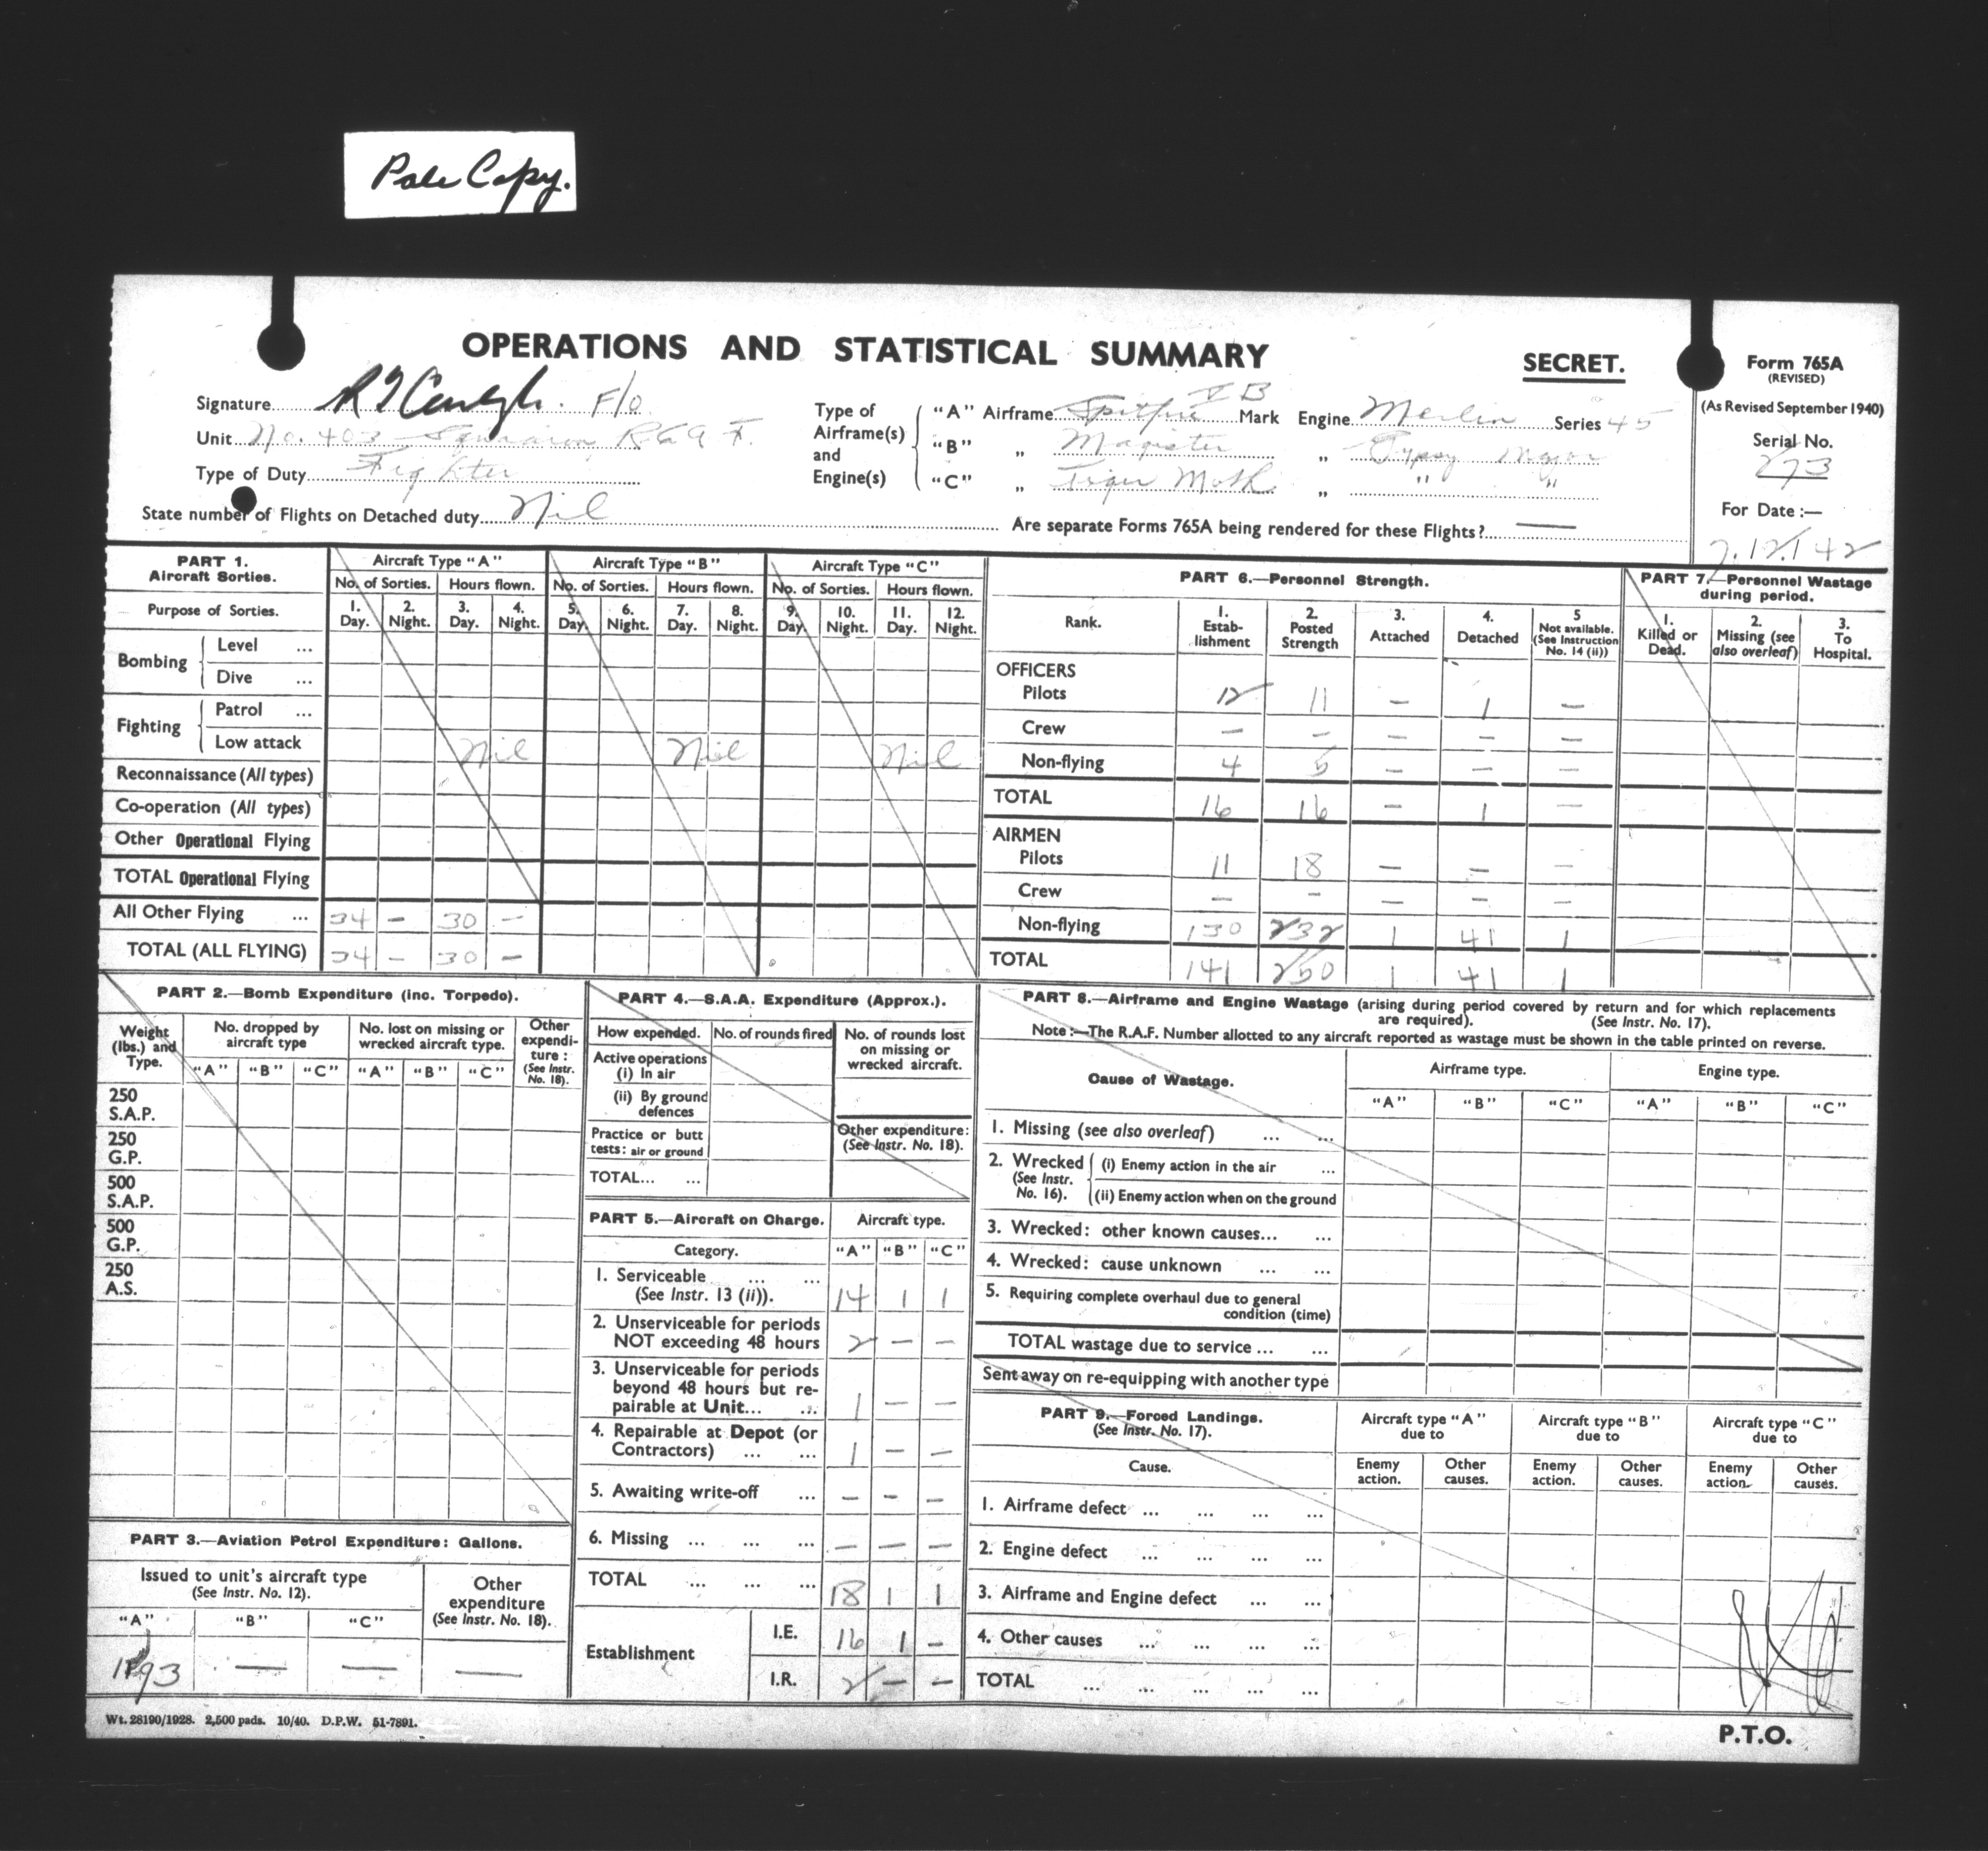 Pale Copy.
OPERATIONS AND STATISTICAL SUMMARY
SECRET.
Form 765A
(REVISED)
(As Revised September 1940)
Serial No.
273
For Date :—
7.12.142
Signature F/O
Unit No. 403 Squadron R C A F.
Type of Duty Fighter
State number of Flights on Detached duty Nil
Type of Airframe(s) and Engine(s)
"A" Airframe Spitfire V B Mark Engine Merlin Series 45
"B" „ Magister „ Gypsy Major
"C" „ Tiger Moth „ " "
Are separate Forms 765A being rendered for these Flights? —
PART 1.
Aircraft Sorties.
Aircraft Type "A" Aircraft Type "B" Aircraft Type "C"
No. of Sorties. Hours flown. No. of Sorties. Hours flown. No. of Sorties. Hours flown.
Purpose of Sorties.
1. Day. 2. Night. 3. Day. 4. Night. 5. Day. 6. Night. 7. Day. 8. Night. 9. Day. 10. Night. 11. Day. 12. Night.
Bombing
Level ...
Dive ...
Fighting
Patrol ...
Low attack Nil Nil Nil
Reconnaissance (All types)
Co-operation (All types)
Other Operational Flying
TOTAL Operational Flying
All Other Flying ... 34 - 30 -
TOTAL (ALL FLYING) 34 - 30 -
PART 6.—Personnel Strength.
Rank. 1. Estab-lishment 2. Posted Strength 3. Attached 4. Detached 5 Not available. (See Instruction No. 14 (ii))
OFFICERS
Pilots 12 11 - 1 -
Crew - - - - -
Non-flying 4 5 - - -
TOTAL 16 16 - 1 -
AIRMEN
Pilots 11 18 - - -
Crew - - - - -
Non-flying 130 232 1 41 1
TOTAL 141 250 1 41 1
PART 7.—Personnel Wastage during period.
1. Killed or Dead. 2. Missing (see also overleaf) 3. To Hospital.
PART 2.—Bomb Expenditure (inc. Torpedo).
Weight (lbs.) and Type. No. dropped by aircraft type No. lost on missing or wrecked aircraft type. Other expendi-ture : (See Instr. No. 18).
"A" "B" "C" "A" "B" "C"
250 S.A.P.
250 G.P.
500 S.A.P.
500 G.P.
250 A.S.
PART 3.—Aviation Petrol Expenditure: Gallons.
Issued to unit's aircraft type
(See Instr. No. 12).
Other expenditure
(See Instr. No. 18).
"A" "B" "C"
— — —
PART 4.—S.A.A. Expenditure (Approx.).
How expended. No. of rounds fired No. of rounds lost on missing or wrecked aircraft.
Active operations
(i) In air
(ii) By ground defences
Practice or butt tests: air or ground
Other expenditure:
(See Instr. No. 18).
TOTAL... ...
PART 5.—Aircraft on Charge. Aircraft type.
Category. "A" "B" "C"
1. Serviceable ... ...
(See Instr. 13 (ii)). 14 1 1
2. Unserviceable for periods
NOT exceeding 48 hours 2 - -
3. Unserviceable for periods
beyond 48 hours but re-
pairable at Unit... ... 1 - -
4. Repairable at Depot (or
Contractors) ... ... 1 - -
5. Awaiting write-off ... - - -
6. Missing ... ... ... - - -
TOTAL ... ... ... 18 1 1
Establishment
I.E. 16 1 -
I.R. 2 - -
PART 8.—Airframe and Engine Wastage (arising during period covered by return and for which replacements
are required). (See Instr. No. 17).
Note :—The R.A.F. Number allotted to any aircraft reported as wastage must be shown in the table printed on reverse.
Cause of Wastage. Airframe type. Engine type.
"A" "B" "C" "A" "B" "C"
1. Missing (see also overleaf) ... ...
2. Wrecked (See Instr. No. 16).
(i) Enemy action in the air ...
(ii) Enemy action when on the ground
3. Wrecked: other known causes... ...
4. Wrecked: cause unknown ... ...
5. Requiring complete overhaul due to general
condition (time)
TOTAL wastage due to service ... ...
Sent away on re-equipping with another type
PART 9.—Forced Landings.
(See Instr. No. 17).
Aircraft type "A" due to Aircraft type "B" due to Aircraft type "C" due to
Cause. Enemy action. Other causes. Enemy action. Other causes. Enemy action. Other causes.
1. Airframe defect ... ... ... ...
2. Engine defect ... ... ... ...
3. Airframe and Engine defect ... ...
4. Other causes ... ... ... ...
TOTAL ... ... ... ... ...
Wt. 28190/1928. 2,500 pads. 10/40. D.P.W. 51-7891.
P.T.O.